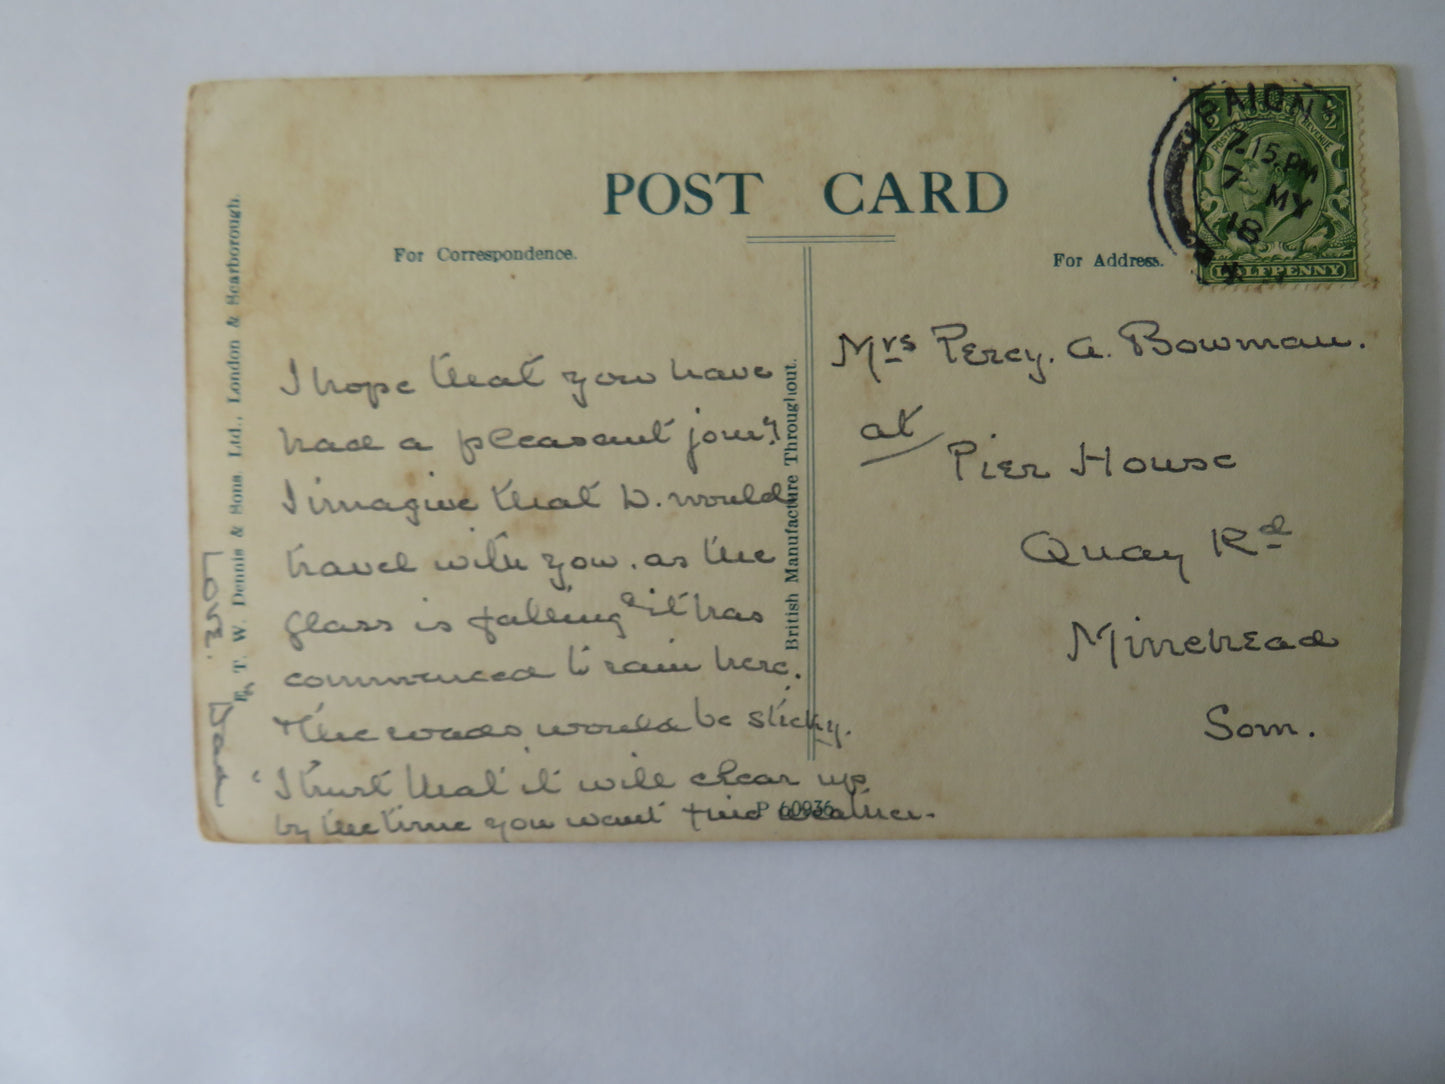 POST CARD
For Correspondence.
For Address.
PAIGN
7.15 PM
7 MY
18
HALFPENNY
I hope that you have
had a pleasant jour'y.
I imagine that D. would
travel with you. as the
glass is falling & it has
commenced to rain here.
The roads would be sticky.
I trust that it will clear up
by the time you want fine weather.
Love. Dad
Mrs Percy. A. Bowman.
at Pier House
Quay Rd
Minehead
Som.
E. T. W. Dennis & Sons Ltd., London & Scarborough.
British Manufacture Throughout.
P 60936